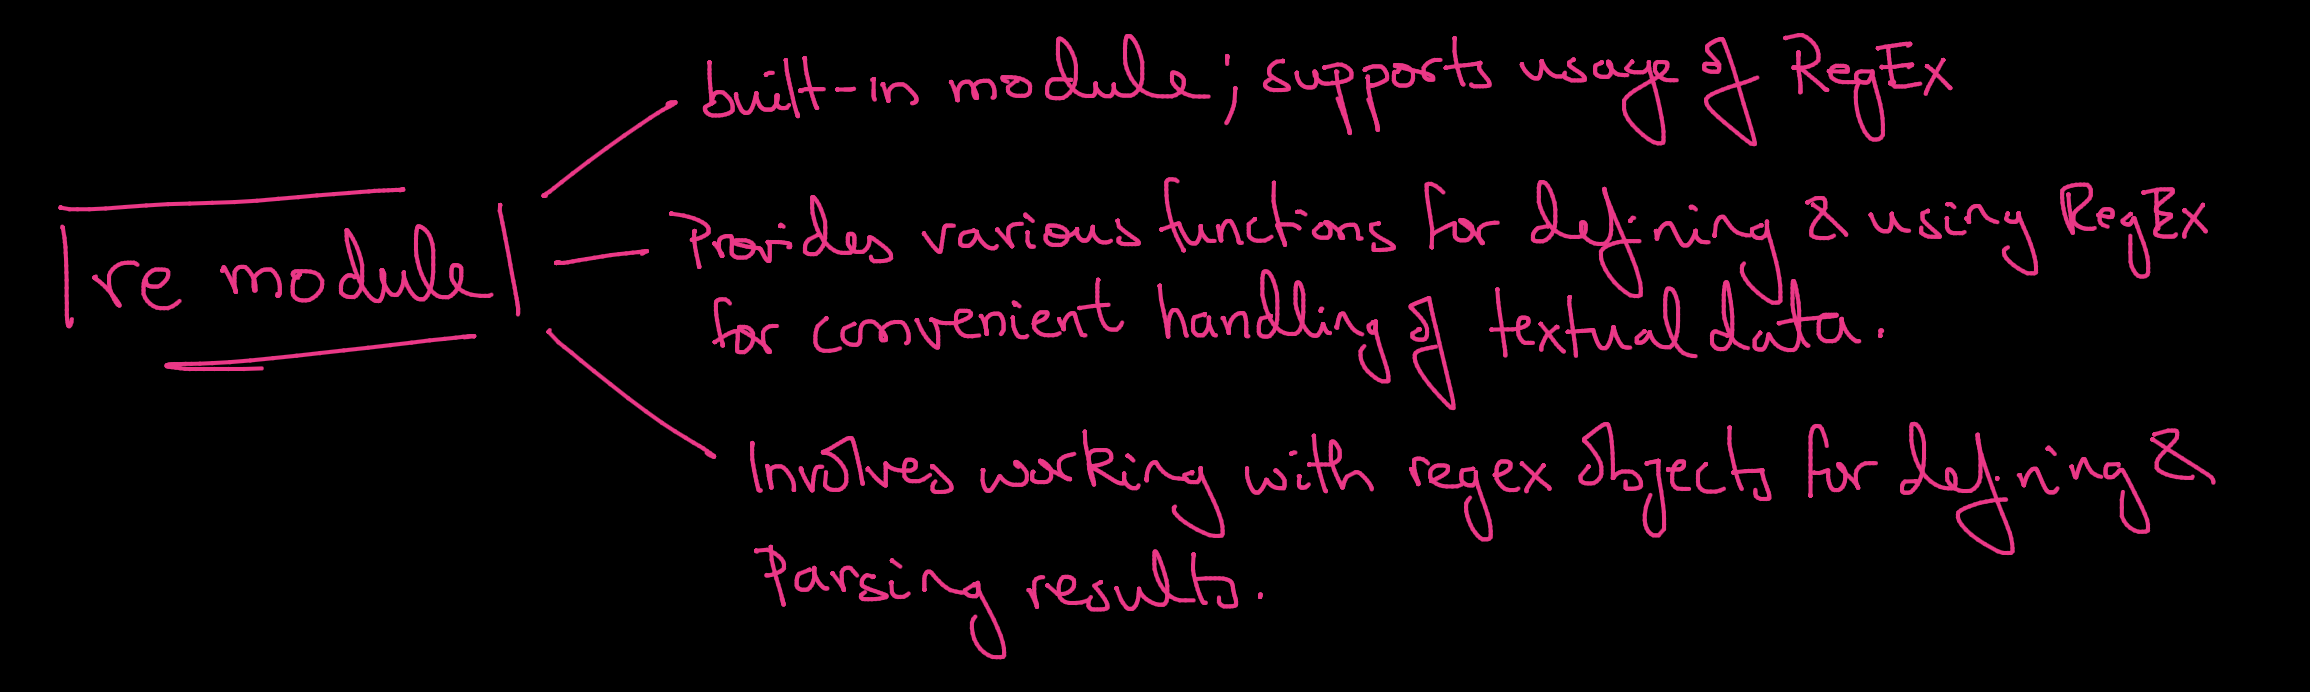 re module
built-in module; supports usage of RegEx
Provides various functions for defining & using RegEx
for convenient handling of textual data.
Involves working with regex objects for defining &
Parsing results.